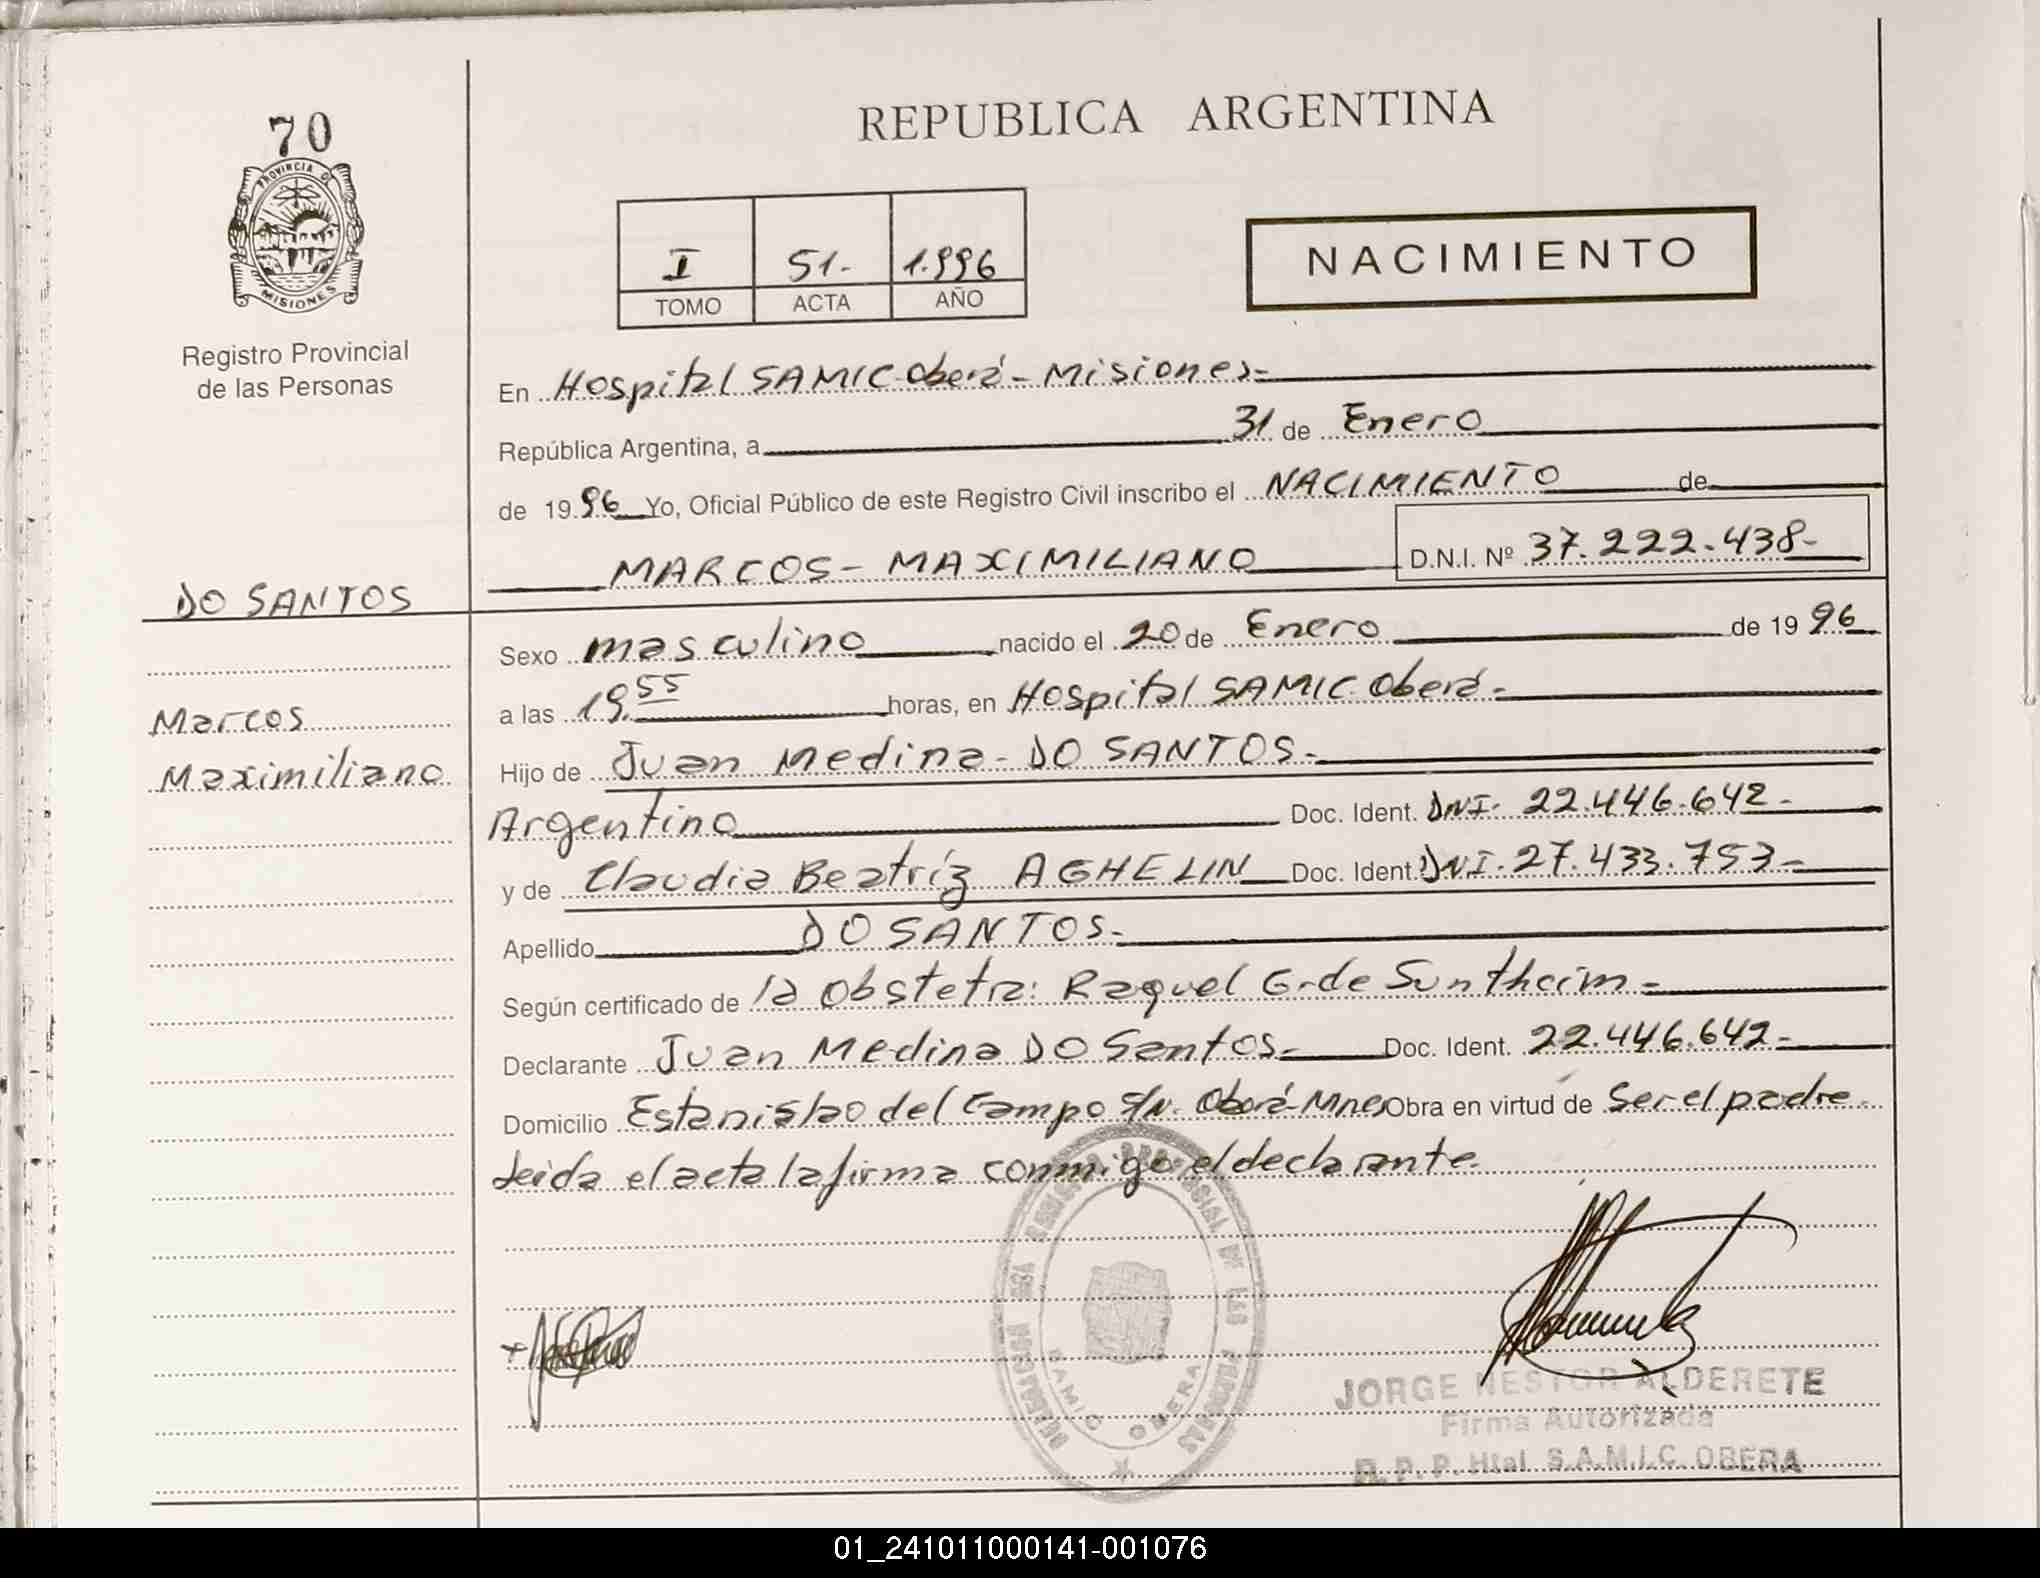 70
PROVINCIA D
MISIONES
Registro Provincial
de las Personas
DO SANTOS
Marcos
Maximiliano
REPUBLICA ARGENTINA
I 51.- 1.996
TOMO ACTA AÑO
NACIMIENTO
En Hospital SAMIC Oberá - Misiones -
República Argentina, a 31 de Enero
de 1996 Yo, Oficial Público de este Registro Civil inscribo el NACIMIENTO de
MARCOS - MAXIMILIANO D.N.I. Nº 37.222.438-
Sexo masculino nacido el 20 de Enero de 1996
a las 19.55 horas, en Hospital SAMIC Oberá -
Hijo de Juan Medina - DO SANTOS -
Argentino Doc. Ident. DNI. 22.446.642 -
y de Claudia Beatríz AGHELIN Doc. Ident. DNI. 27.433.753 -
Apellido DO SANTOS -
Según certificado de la Obstetra: Raquel G. de Suntheim -
Declarante Juan Medina DO Santos - Doc. Ident. 22.446.642 -
Domicilio Estanislao del Campo S/N. Oberá - Mnes Obra en virtud de Ser el padre.
Leida el acta la firma conmigo el declarante.
SAMIC OBERA
JORGE NESTOR ALDERETE
Firma Autorizada
R. P. P. Htal S.A.M.I.C. OBERA
01_241011000141-001076